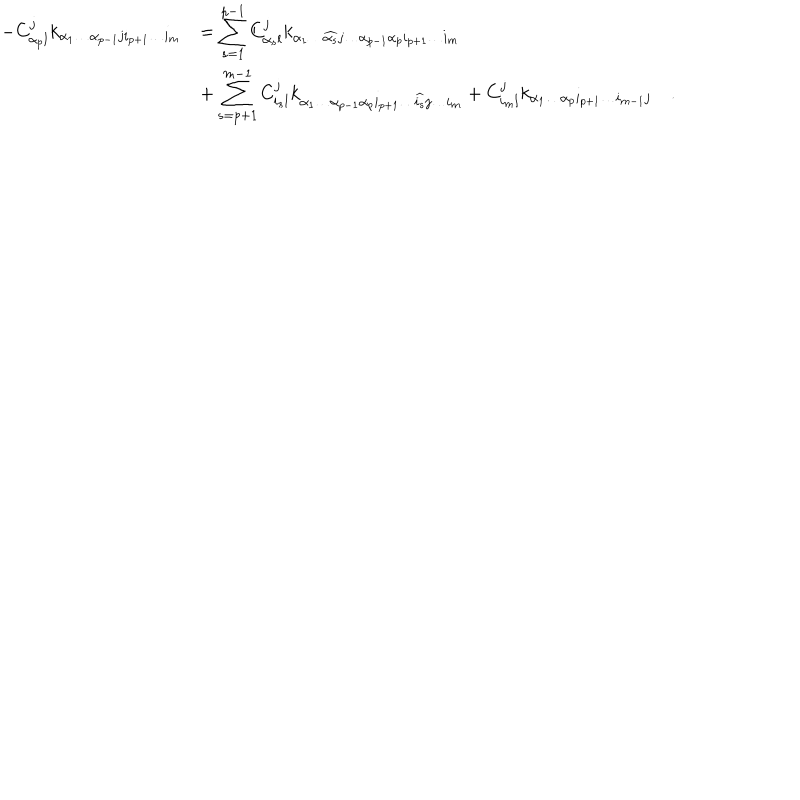 -C^j_{\alpha_p l} k_{\alpha_1 \ldots \alpha_{p-1} j i_{p+1} \ldots i_m} = \sum_{s=1}^{p-1} C^j_{\alpha_s l} k_{\alpha_1 \ldots \widehat{\alpha_s} j \ldots \alpha_{p-1} \alpha_p i_{p+1} \ldots i_m}
+ \sum_{s=p+1}^{m-1} C^j_{i_s l} k_{\alpha_1 \ldots \alpha_{p-1} \alpha_p i_{p+1} \ldots \widehat{i_s} j \ldots i_m} + C^j_{i_m l} k_{\alpha_1 \ldots \alpha_p i_{p+1} \ldots i_{m-1} j} .